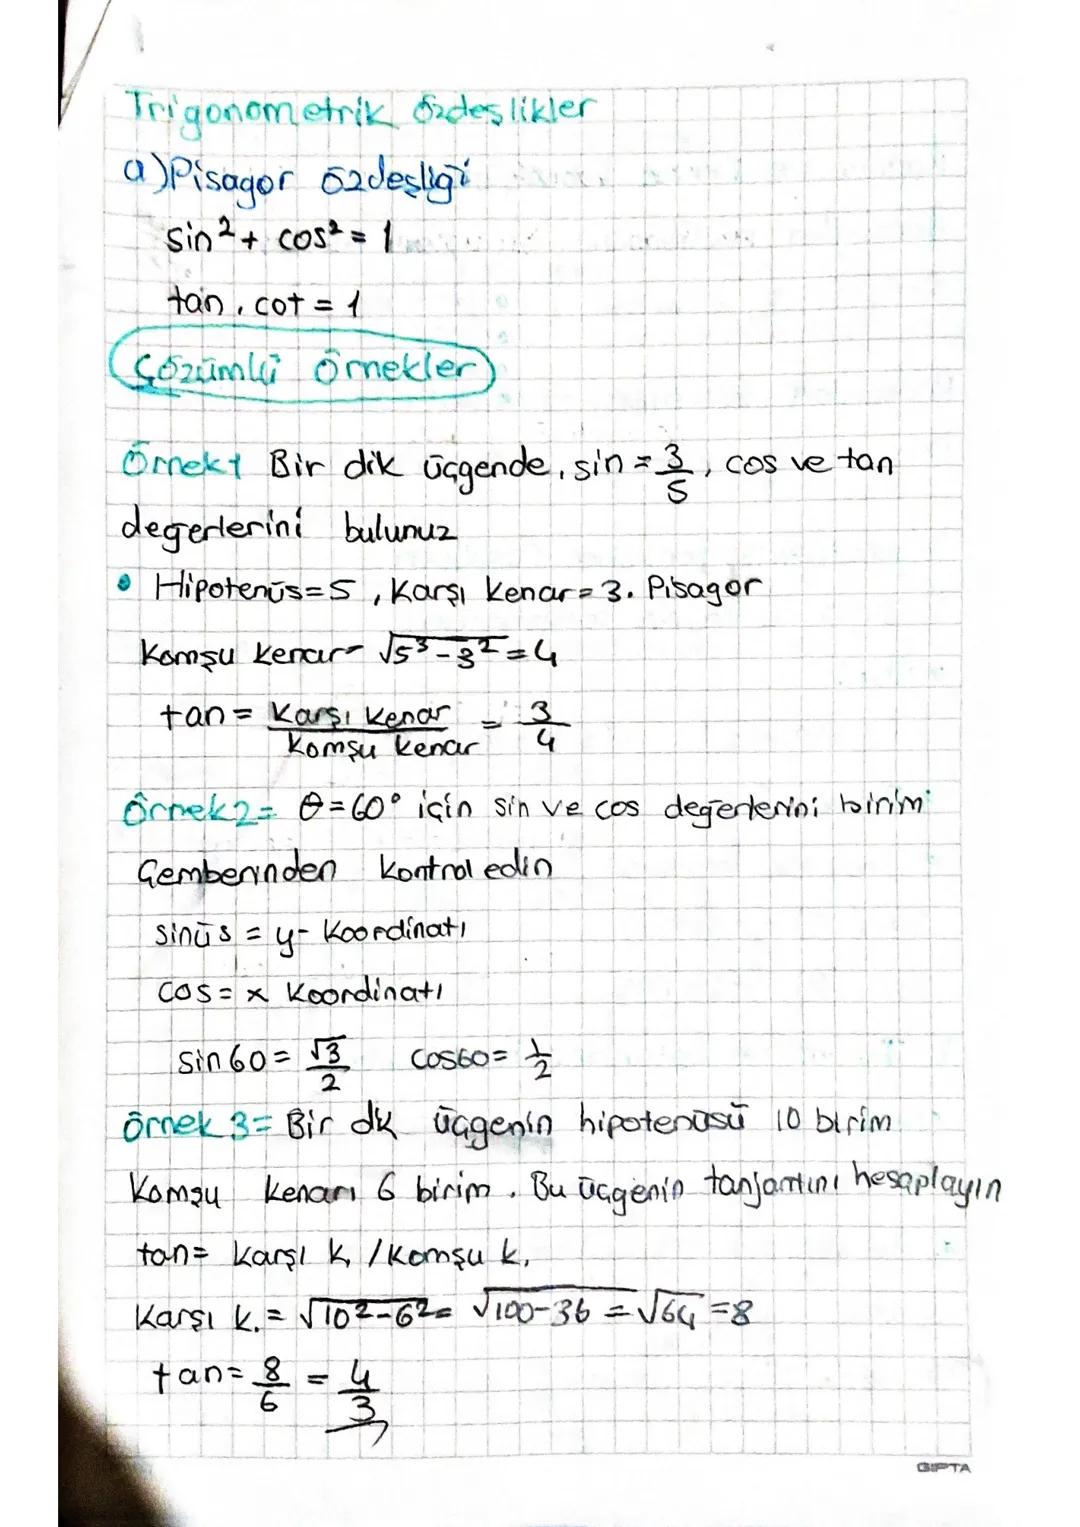 Trigonometrik Özdeşlikler
a) Pisagor özdeşliği
sin² + cos² = 1
tan . cot = 1
Çözümlü Örnekler
Örnek1 Bir dik üçgende, sin = 3/5, cos ve tan
değerlerini bulunuz
• Hipotenüs=5, Karşı kenar=3. Pisagor
Komşu kenar= √5³-3² = 4
tan = Karşı kenar / Komşu kenar = 3/4
Örnek2= θ=60° için sin ve cos değerlerini birim
Çemberinden kontrol edin
sinüs = y- Koordinatı
cos = x Koordinatı
sin60 = √3/2 cos60 = 1/2
örnek 3= Bir dik üçgenin hipotenüsü 10 birim
Komşu kenarı 6 birim. Bu üçgenin tanjantını hesaplayın
tan= Karşı k. / Komşu k.
Karşı k. = √10²-6² = √100-36 = √64 = 8
tan = 8/6 = 4/3
GIPTA